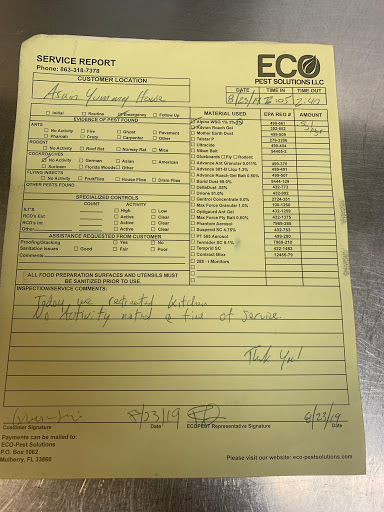 SERVICE REPORT
Phone: 863-318-7378
ECO
PEST SOLUTIONS LLC
CUSTOMER LOCATION
Asian Yummy House
DATE TIME IN TIME OUT
8/23/19 2:40
Initial Routine Emergency Follow Up
EVIDENCE OF PEST FOUND
ANTS
No Activity Fire Ghost Pavement
Pharoah Crazy Carpenter Other
RODENT
No Activity Roof Rat Norway Rat Mice
COCKROACHES
No Activity German Asian American
Surinam Florida Woods Other
FLYING INSECTS
No Activity Fruit Flies House Flies Drain Flies
OTHER PESTS FOUND
SPECIALIZED CONTROLS
COUNT ACTIVITY
ILT'S High Low
RCD's Ext Active Clear
RCD's Int Active Clear
Other Active Clear
ASSISTANCE REQUESTED FROM CUSTOMER
Proofing/Stacking Yes No
Sanitation Issues Good Fair Poor
Comments
ALL FOOD PREPARATION SURFACES AND UTENSILS MUST
BE SANITIZED PRIOR TO USE.
MATERIAL USED EPA REG # AMOUNT
Alpine WSG 499-561
Advion Roach Gel 352-652
Maxforce
Telstar P 279-3206
Ultracide 499-404
Niban Bait 64405-2
Glueboards Fly Rodent
Advance Ant Granular 0.011% 499-370
Advance 381-B Liqu 1.3% 499-491
Advance Roach Gel Bait 0.50% 499-507
Borid Dust 99.0% 9444-129
DeltaDust .05% 432-772
Drione 91.0% 432-992
Gentrol Concentrate 9.0% 2724-351
Max Force Granular 1.0% 432-1255
Optigard Ant Gel 100-1260
Max Force Fly Bait 0.60% 432-1375
Phantom Aerosol 241-392
Suspend SC 4.75% 432-763
PT 565 Aerosol 499-290
Termidor SC 9.1% 7969-210
Temprid SC 432-1483
Contrac Blox 12455-79
288 - I Monitors
INSPECTION/SERVICE COMMENTS:
Today we retreated kitchen
No Activity noted @ time of service.
Thank You!
8/23/19 8/23/19
Customer Signature Date ECOPEST Representative Signature Date
Payments can be mailed to:
ECO-Pest Solutions
P.O. Box 1062
Mulberry, FL 33860
Please visit our website: eco-pestsolutions.com